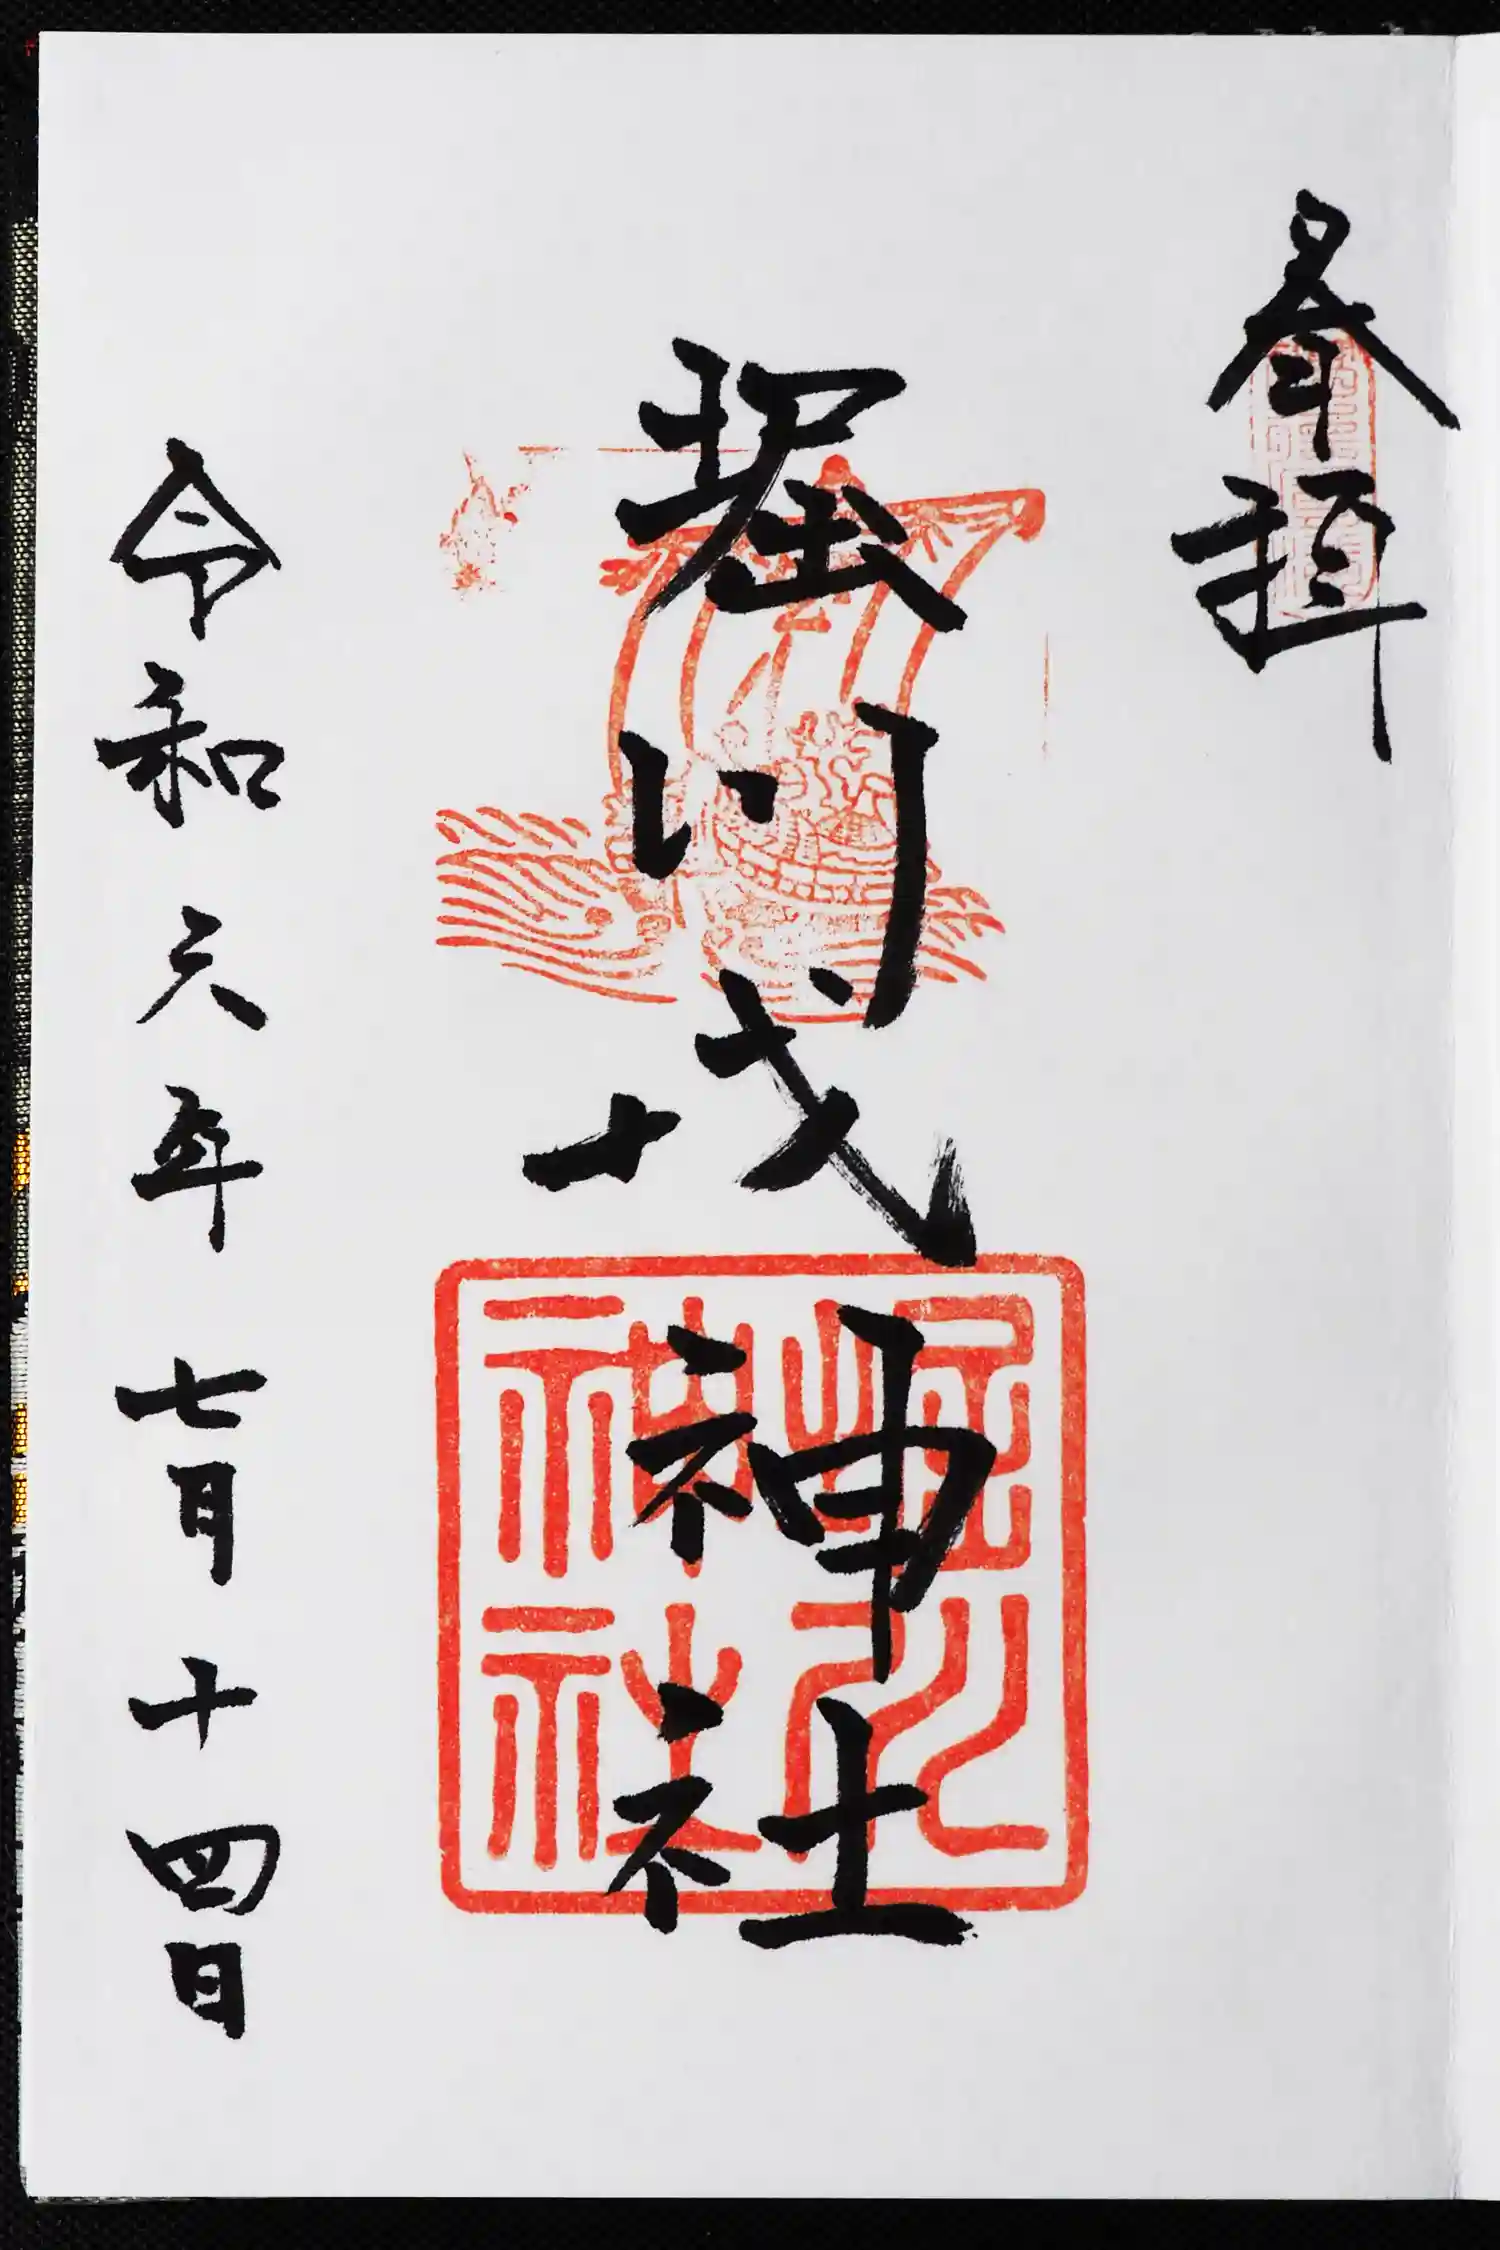 参拝
堀川戎神社
堀川
神社
令和六年七月十四日